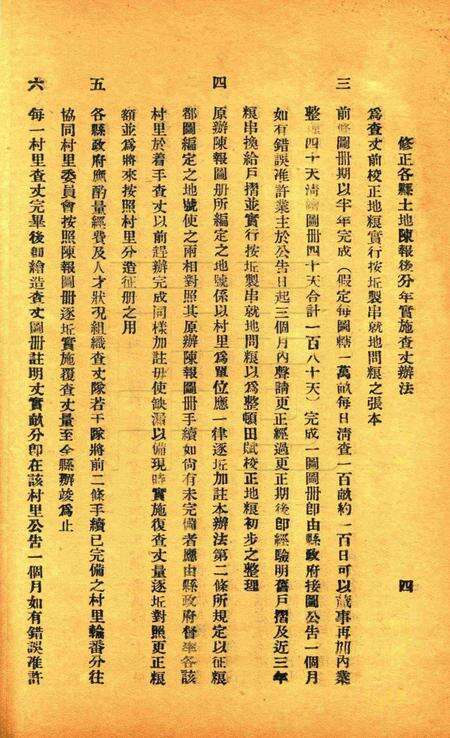 修正各縣土地陳報後分年實施查丈辦法
四
為查丈前校正地糧實行按坵製串就地問糧之張本
三 前條圖冊期以半年完成（假定每圖轄一萬畝每日清查一百畝約一百日可以竣事再加內業
整理四十天清繪圖冊四十天合計一百八十天）完成一圖圖冊卽由縣政府按圖公告一個月
如有錯誤准許業主於公告日起三個月內聲請更正經過更正期後卽經驗明舊戶摺及近三年
糧串換給戶摺並實行按坵製串就地問糧以為整頓田賦校正地糧初步之整理
四 原辦陳報圖册所編定之地號係以村里為單位應一律逐坵加註本辦法第二條所規定以征糧
都圖編定之地號使之兩相對照其原辦陳報圖冊手續如尙有未完備者應由縣政府督率各該
村里於着手查丈以前趕辦完成同樣加註毋使缺漏以備現時實施復查丈量逐坵對照更正糧
額並為將來按照村里分造征册之用
五 各縣政府應酌量經費及人才狀況組織查丈隊若干隊將前二條手續已完備之村里輪番分往
協同村里委員會按照陳報圖冊逐坵實施覆查丈量至全縣辦竣為止
六 每一村里查丈完畢後卽繪造查丈圖册註明丈實畝分卽在該村里公告一個月如有錯誤准許